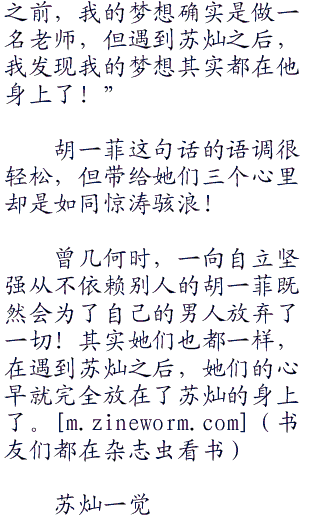 之前，我的梦想确实是做一
名老师，但遇到苏灿之后，
我发现我的梦想其实都在他
身上了！”
胡一菲这句话的语调很
轻松，但带给她们三个心里
却是如同惊涛骇浪！
曾几何时，一向自立坚
强从不依赖别人的胡一菲既
然会为了自己的男人放弃了
一切！其实她们也都一样，
在遇到苏灿之后，她们的心
早就完全放在了苏灿的身上
了。[m.zineworm.com]（书
友们都在杂志虫看书）
苏灿一觉